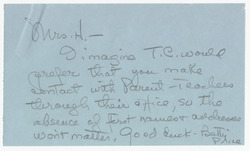 Mrs. H.—
I imagine T.C. would
prefer that you make
contact with Parent-Teachers
through their office, so the
absence of first names + addresses
won't matter. Good luck - Betty
Price